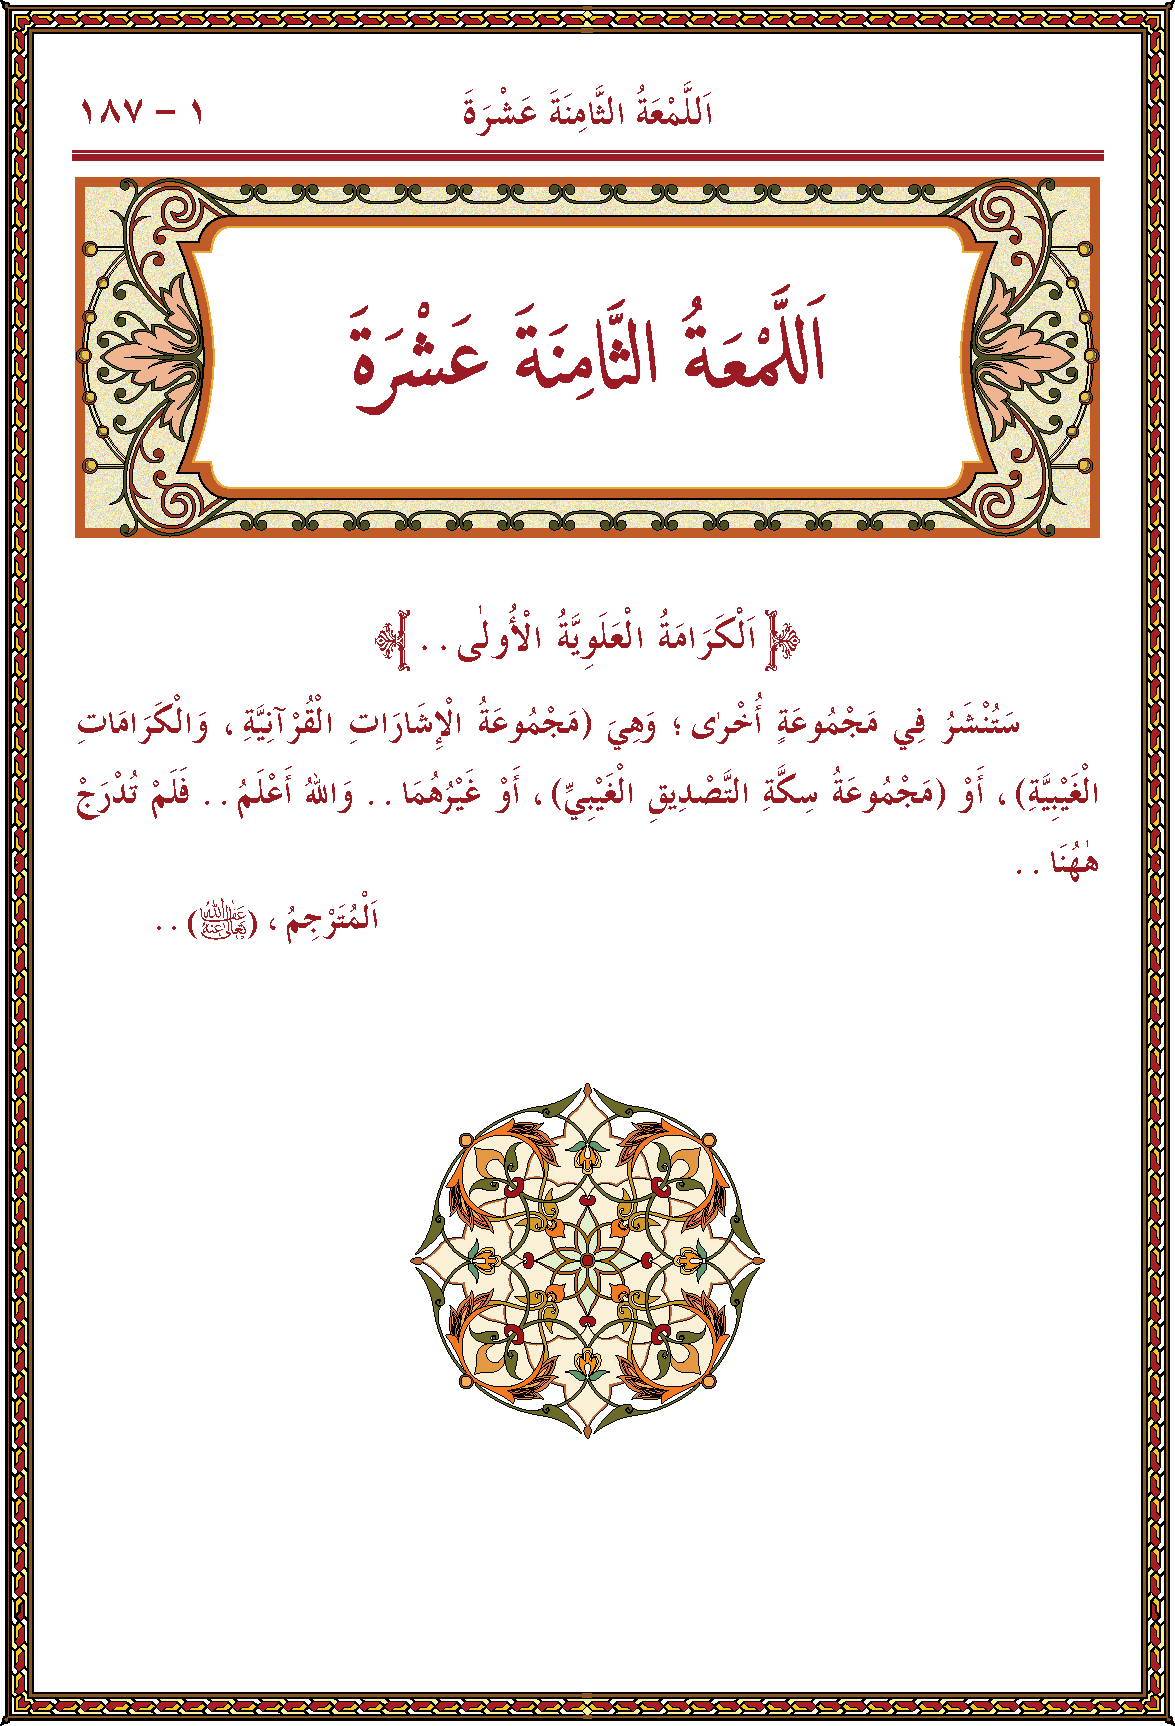 اَللَّمْعَةُ الثَّامِنَةَ عَشْرَةَ ١ – ١٨٧
اَللَّمْعَةُ الثَّامِنَةَ عَشْرَةَ
﴿اَلْكَرَامَةُ الْعَلَوِيَّةُ الْأُولٰى . .﴾
سَتُنْشَرُ فِي مَجْمُوعَةٍ أُخْرٰى ؛ وَهِيَ (مَجْمُوعَةُ الْإِشَارَاتِ الْقُرْآنِيَّةِ ، وَالْكَرَامَاتِ
الْغَيْبِيَّةِ) ، أَوْ (مَجْمُوعَةُ سِكَّةِ التَّصْدِيقِ الْغَيْبِيِّ) ، أَوْ غَيْرُهُمَا . . وَاللهُ أَعْلَمُ . . فَلَمْ تُدْرَجْ
هٰهُنَا . .
اَلْمُتَرْجِمُ ، (عَفَا اللهُ تَعَالٰى عَنْهُ) . .